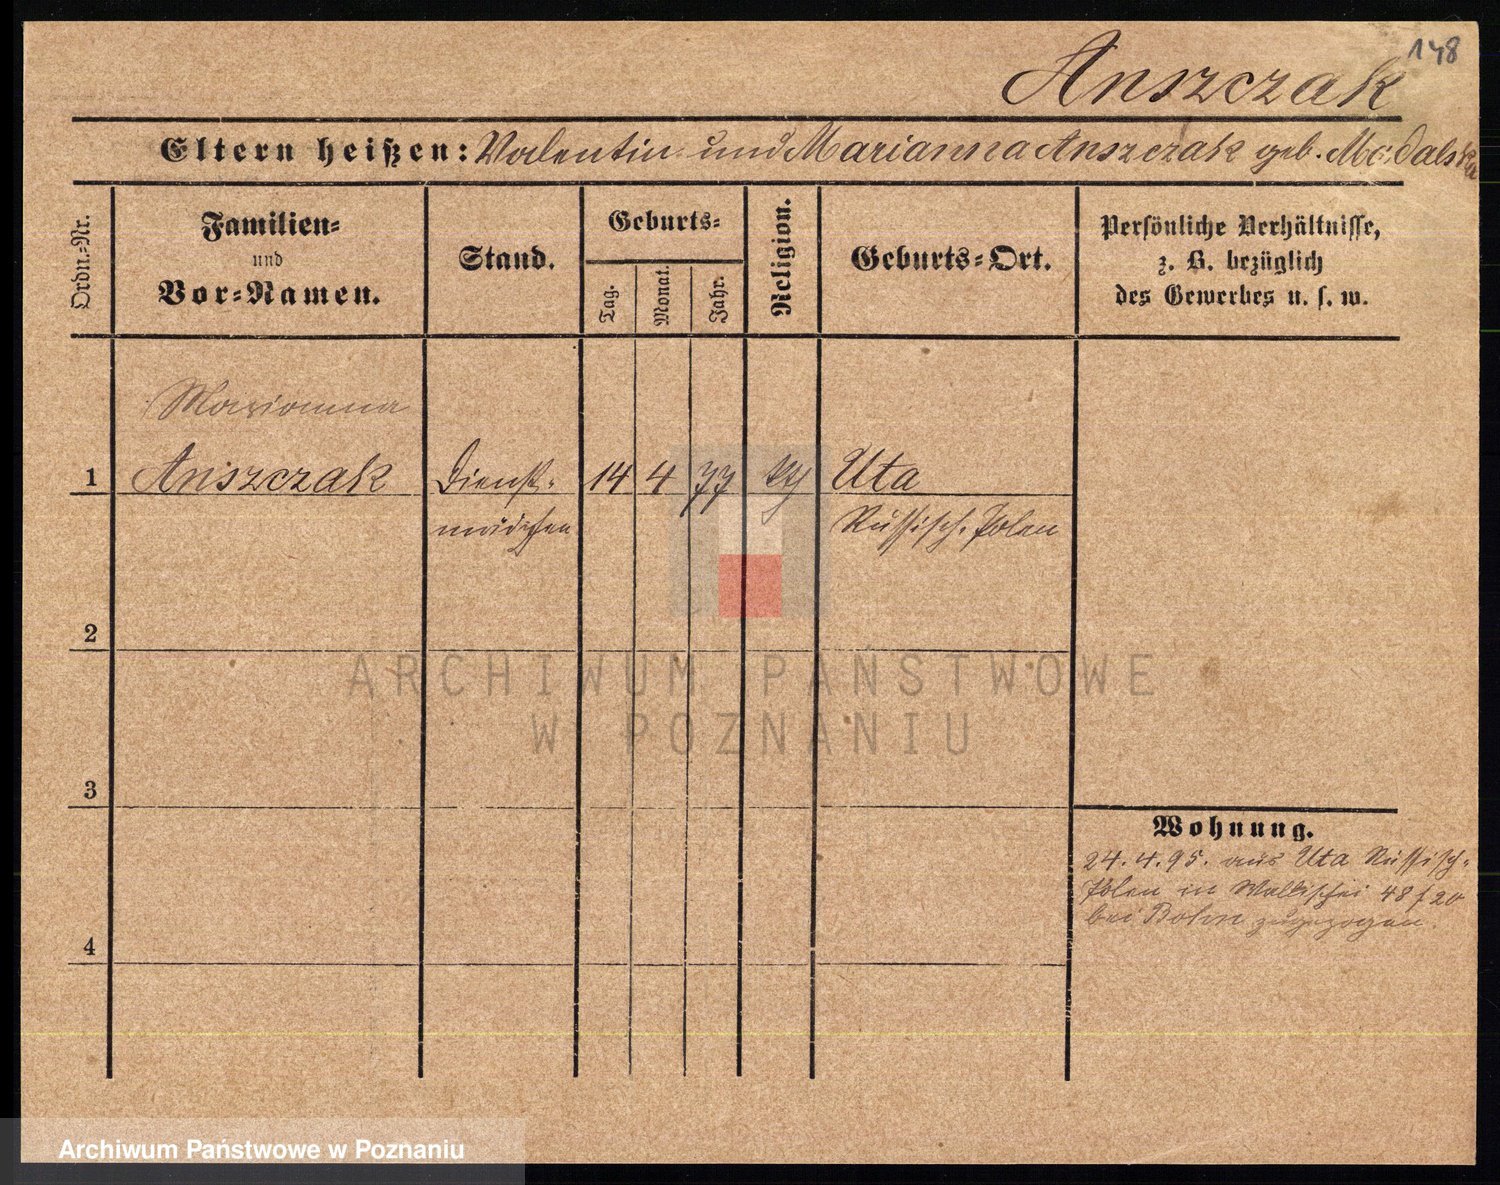 148
Anszczak
Eltern heißen: Valentin und Marianna Anszczak geb. Modalska
Ordn.-Nr.
Familien-
und
Vor-Namen.
Stand.
Geburts-
Tag.
Monat.
Jahr.
Religion.
Geburts-Ort.
Persönliche Verhältnisse,
z. B. bezüglich
des Gewerbes u. s. w.
Marianna
1 Anszczak Dienst- 14 4 77 Uta
mädchen Russisch-Polen
2
3
4
Wohnung.
24.4.95. aus Uta Russisch-
Polen in Wallischei 48 f 20
bei Bohn zugezogen.
ARCHIWUM PAŃSTWOWE
W POZNANIU
Archiwum Państwowe w Poznaniu